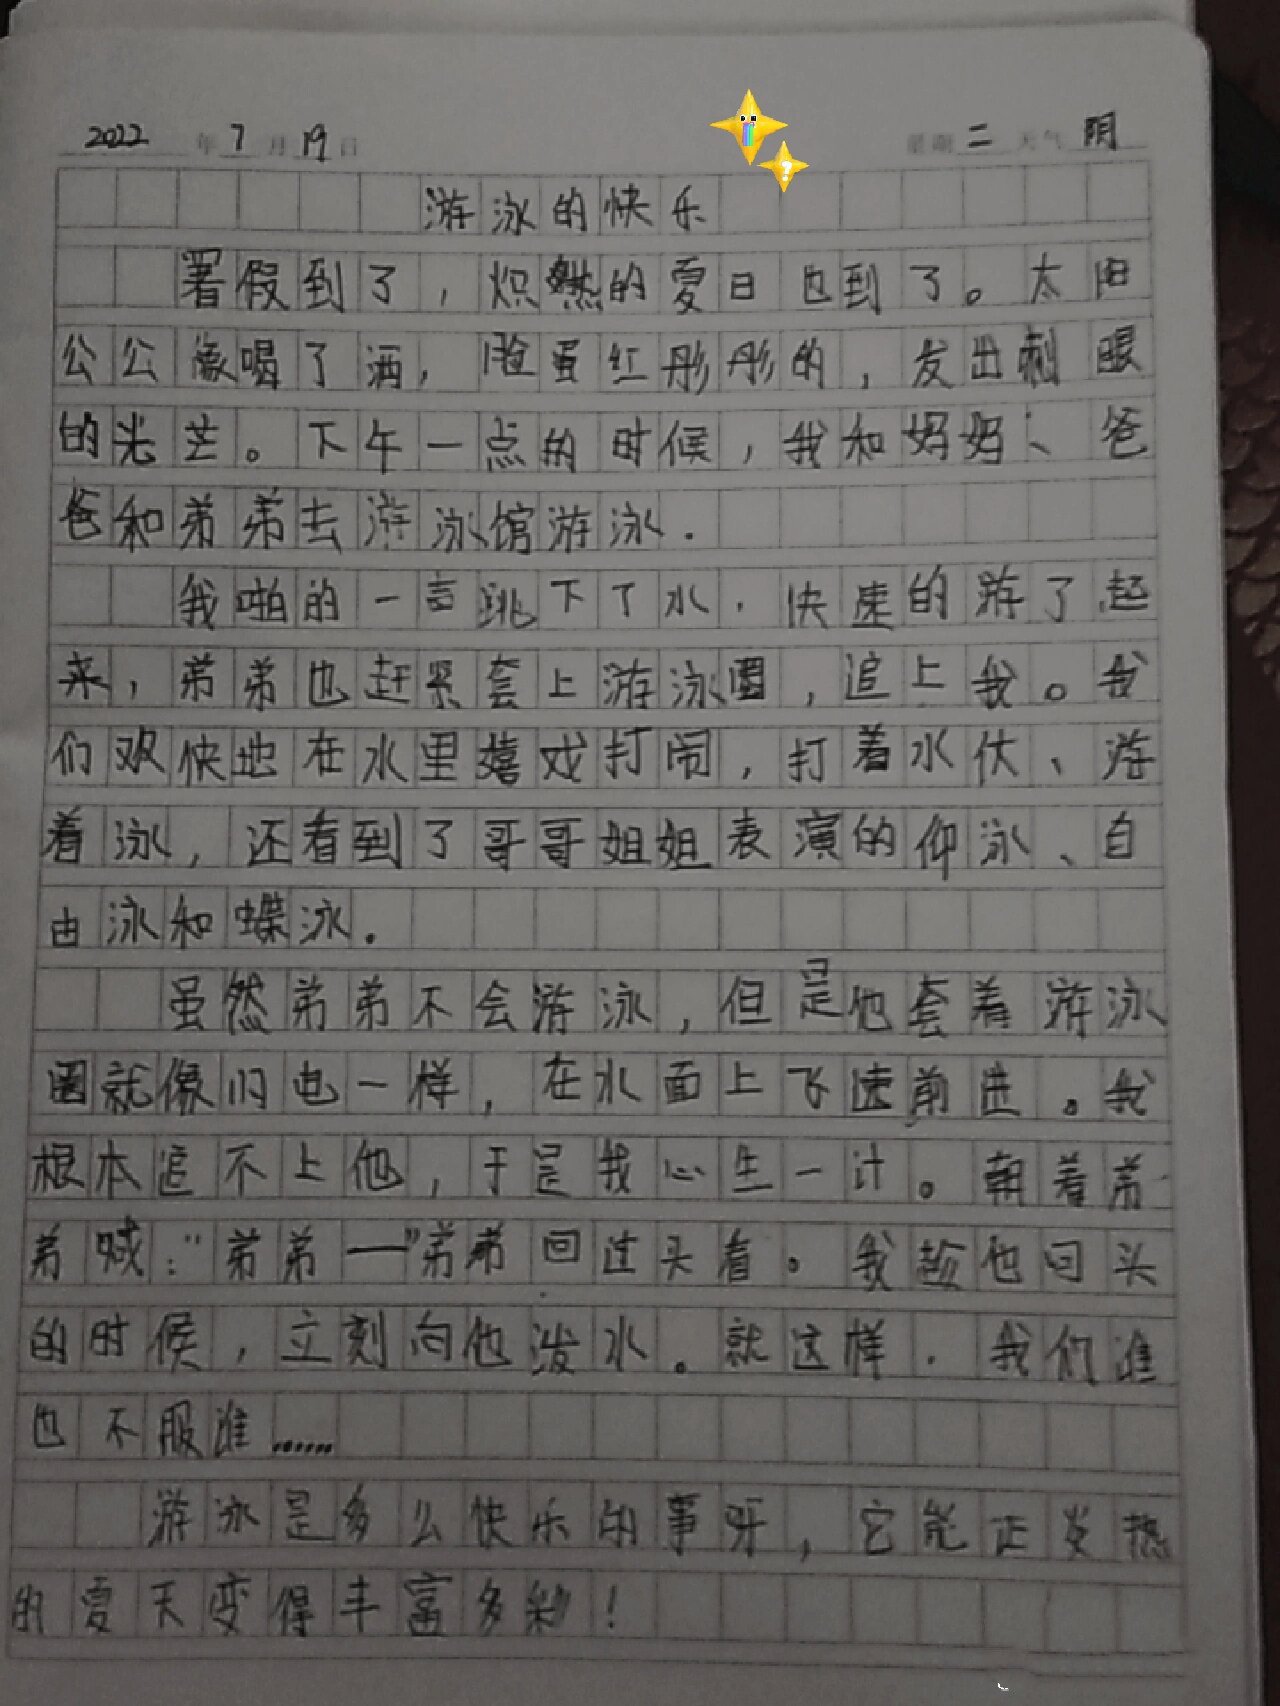 2022年7月19日 星期二 天气 阴
游泳的快乐
署假到了，炽热的夏日也到了。太阳
公公像喝了酒，脸蛋红彤彤的，发出刺眼
的光芒。下午一点的时候，我和妈妈、爸
爸和弟弟去游泳馆游泳.
我啪的一声跳下了水，快速的游了起
来，弟弟也赶紧套上游泳圈，追上我。我
们欢快地在水里嬉戏打闹，打着水仗、游
着泳，还看到了哥哥姐姐表演的仰泳、自
由泳和蝶泳.
虽然弟弟不会游泳，但是他套着游泳
圈就像闪电一样，在水面上飞速前进。我
根本追不上他，于是我心生一计。朝着弟
弟喊："弟弟—"弟弟回过头看。我趁他回头
的时候，立刻向他泼水。就这样，我们谁
也不服谁……
游泳是多么快乐的事呀，它能让炎热
的夏天变得丰富多彩！